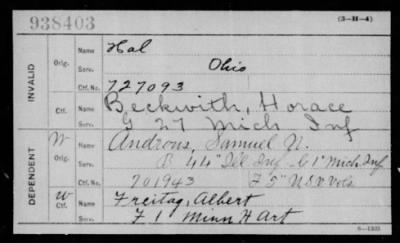 938403
(3-H-4)
INVALID
Orig. Name Hal
Serv. Ohio
Ctf. No. 727093
Ctf. Name Beckwith, Horace
Serv. G 27 Mich Inf
DEPENDENT
W Orig. Name Androws, Samuel N.
Serv. B 44" Ill Inf - G 1" Mich Inf
Ctf. No. 701943 F 5" U S V Vols
W Ctf. Name Freitag, Albert
Serv. F 1 Minn H Art